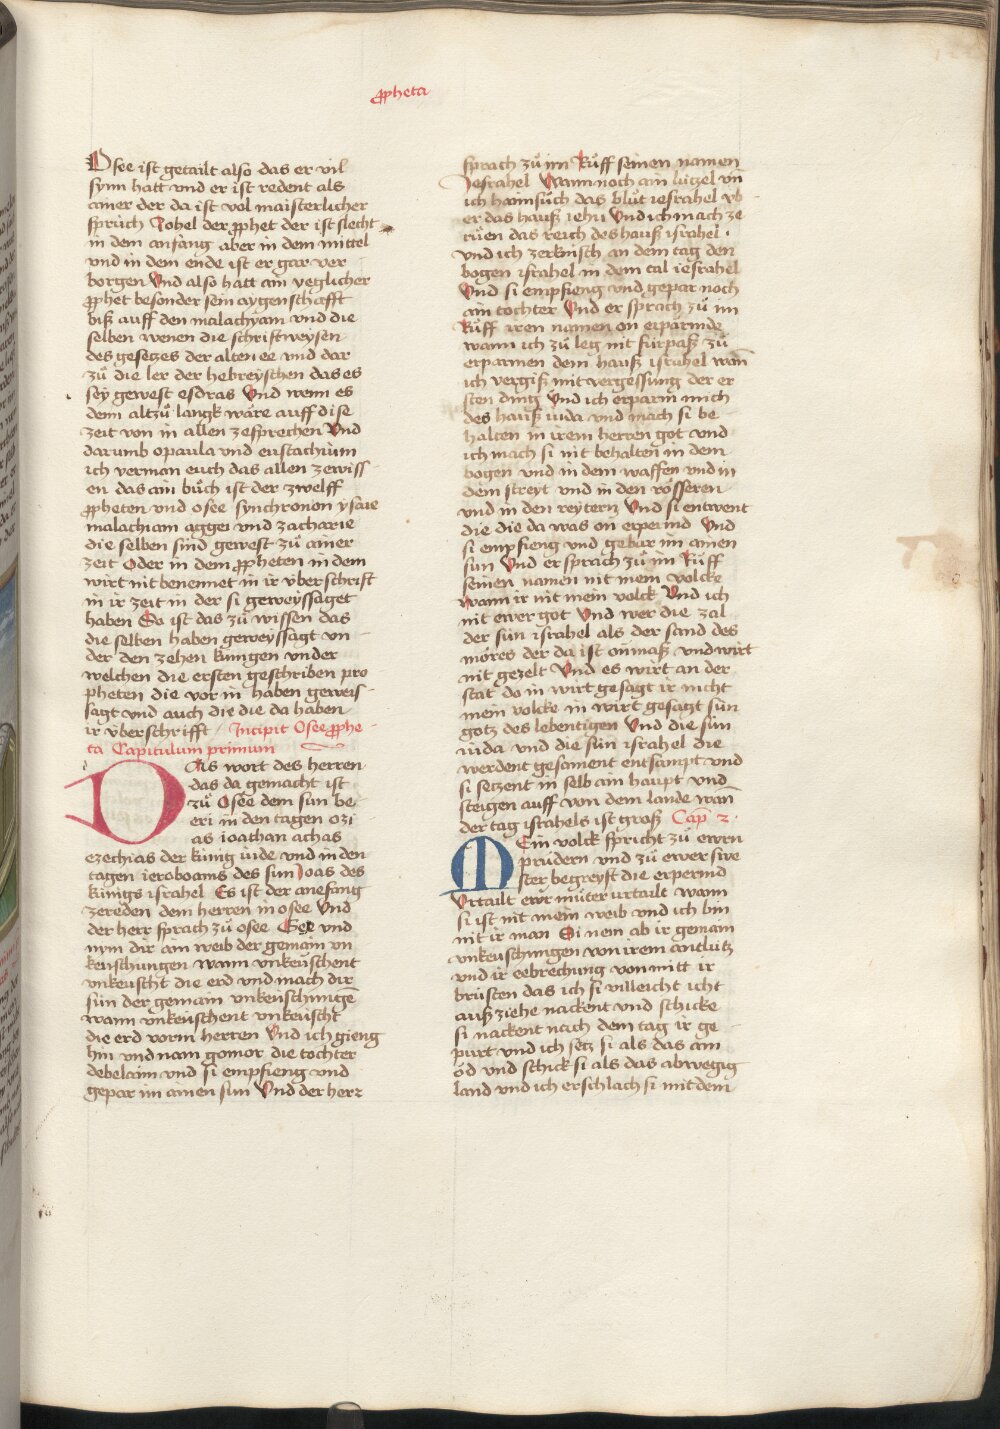 ꝓpheta
Osee ist getailt also das er vil
synn hatt vnd er ist redent als
ainer der da ist vol maisterlicher
sprüch Johel der ꝓphet der ist slecht
in dem anfang aber in dem mittel
vnd in dem ende ist er gar ver
borgen Vnd also hatt ain yeglicher
ꝓphet besonder sein aygenschafft
biß auff den malachyam vnd die
selben wenen die schriftweysen
des gesetzes der alten ee vnd dar
zů die ler der hebreyschen das es
sey gewest esdras Vnd wenn es
denn altzů langk wäre auff dise
zeit von in allen zesprechen Vnd
darumb o paula vnd eustachium
ich verman euch das allen zewiss
en das ain bůch ist der zwelff
ꝓpheten vnd osee synchronon ysaie
malachiam aggei vnd zacharie
die selben sind gewest zů ainer
zeit Oder in dem ꝓpheten in dem
wirt nit benennet in ir v̈berschrift
in ir zeit in der si geweyssaget
haben So ist das zů wissen das
die selben haben geweyssagt vn
der den zehen kunigen vnder
welchen die ersten geschriben pro
pheten die vor in haben geweis
sagt vnd auch die die da haben
ir v̈berschrifft Incipit Osee ꝓphe
ta Capitulum primum
Das wort des herren
das da gemacht ist
zů Osee dem sun be
eri in den tagen ozi
as ioathan achas
ezechias der künig iude vnd in den
tagen ieroboams des sun Joas des
künigs israhel Es ist der anefang
zereden dem herren in osee Vnd
der herr sprach zů osee Gee vnd
nym dir ain weib der gemain vn
keuschungen wann vnkeuschent
vnkeuscht die erd vnd mach dir
sün der gemain vnkeuschungē
wann vnkeuschent vnkeuscht
die erd vorm herren Vnd ich gieng
hin vnd nam gomor die tochter
debelaim vnd si empfieng vnd
gepar im ainen sun Vnd der herr
sprach zů im Růff seinen namen
Jesrahel Wann noch ain lützel vn̄
ich haimsůch das blůt iesrahel vb
er das hauß iehu Vnd ich mach ze
růen das reich des hauß israhel
vnd ich zerknisch an dem tag den
bogen israhel in dem tal iesrahel
Vnd si empfieng vnd gepar noch
ain tochter Vnd er sprach zů im
Růff iren namen on erparmde
wann ich zů leg nit fürpaß zů
erparmen dem hauß israhel wan̄
ich vergiß mit vergessung der er
sten ding Vnd ich erparm mich
des hauß iuda vnd mach si be
halten in irem herren got vnd
ich mach si nit behalten in dem
bogen vnd in dem waffen vnd in
dem streyt vnd in den rösseren
vnd in den reytern Vnd si entwent
die die da was on erpermd Vnd
si empfieng vnd gebar im ainen
sun Vnd er sprach zů im Růff
seinen namen nit mein volcke
wann ir nit mein volck Vnd ich
nit ewer got Vnd wer die zal
der sun israhel als der sand des
möres der da ist on maß vnd wirt
nit gezelt Vnd es wirt an der
stat do in wirt gesagt ir nicht
mein volcke in wirt gesagt sün
gotz des lebentigen Vnd die sün
iuda vnd die sün israhel die
werdent gesament entsampt vnd
si setzent in selb ain haupt vnd
steigen auff von dem lande wan̄
der tag israhels ist groß Cap̄ 2
Mein volck spricht zů ewrn
prüdern vnd zů ewer swe
ster begreyft die erpermd
Vrtailt ewr můter vrtailt wann
si ist nit mein weib vnd ich bin
nit ir man Si nem ab ir gemain
vnkeuschungen von irem antlütz
vnd ir eebrechung von mitt ir
brüsten das ich si villeicht icht
auß ziehe nackent vnd schicke
si nackent nach dem tag ir ge
purt vnd ich setz si als das ain
öd vnd schick si als das abwegig
land vnd ich erschlach si mit dem